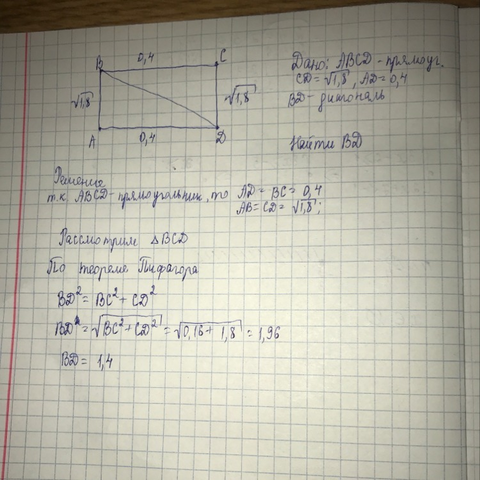 B 0,4 C
√1,8 √1,8
A 0,4 D
Дано: ABCD - прямоуг.
CD = √1,8, AD = 0,4
BD - дигональ
Найти BD
Решение
т.к. ABCD - прямоугольник, то AD = BC = 0,4
AB = CD = √1,8;
Рассмотрим △BCD
По теореме Пифагора
BD² = BC² + CD²
BD² = √BC² + CD² = √0,16 + 1,8 = 1,96
BD = 1,4